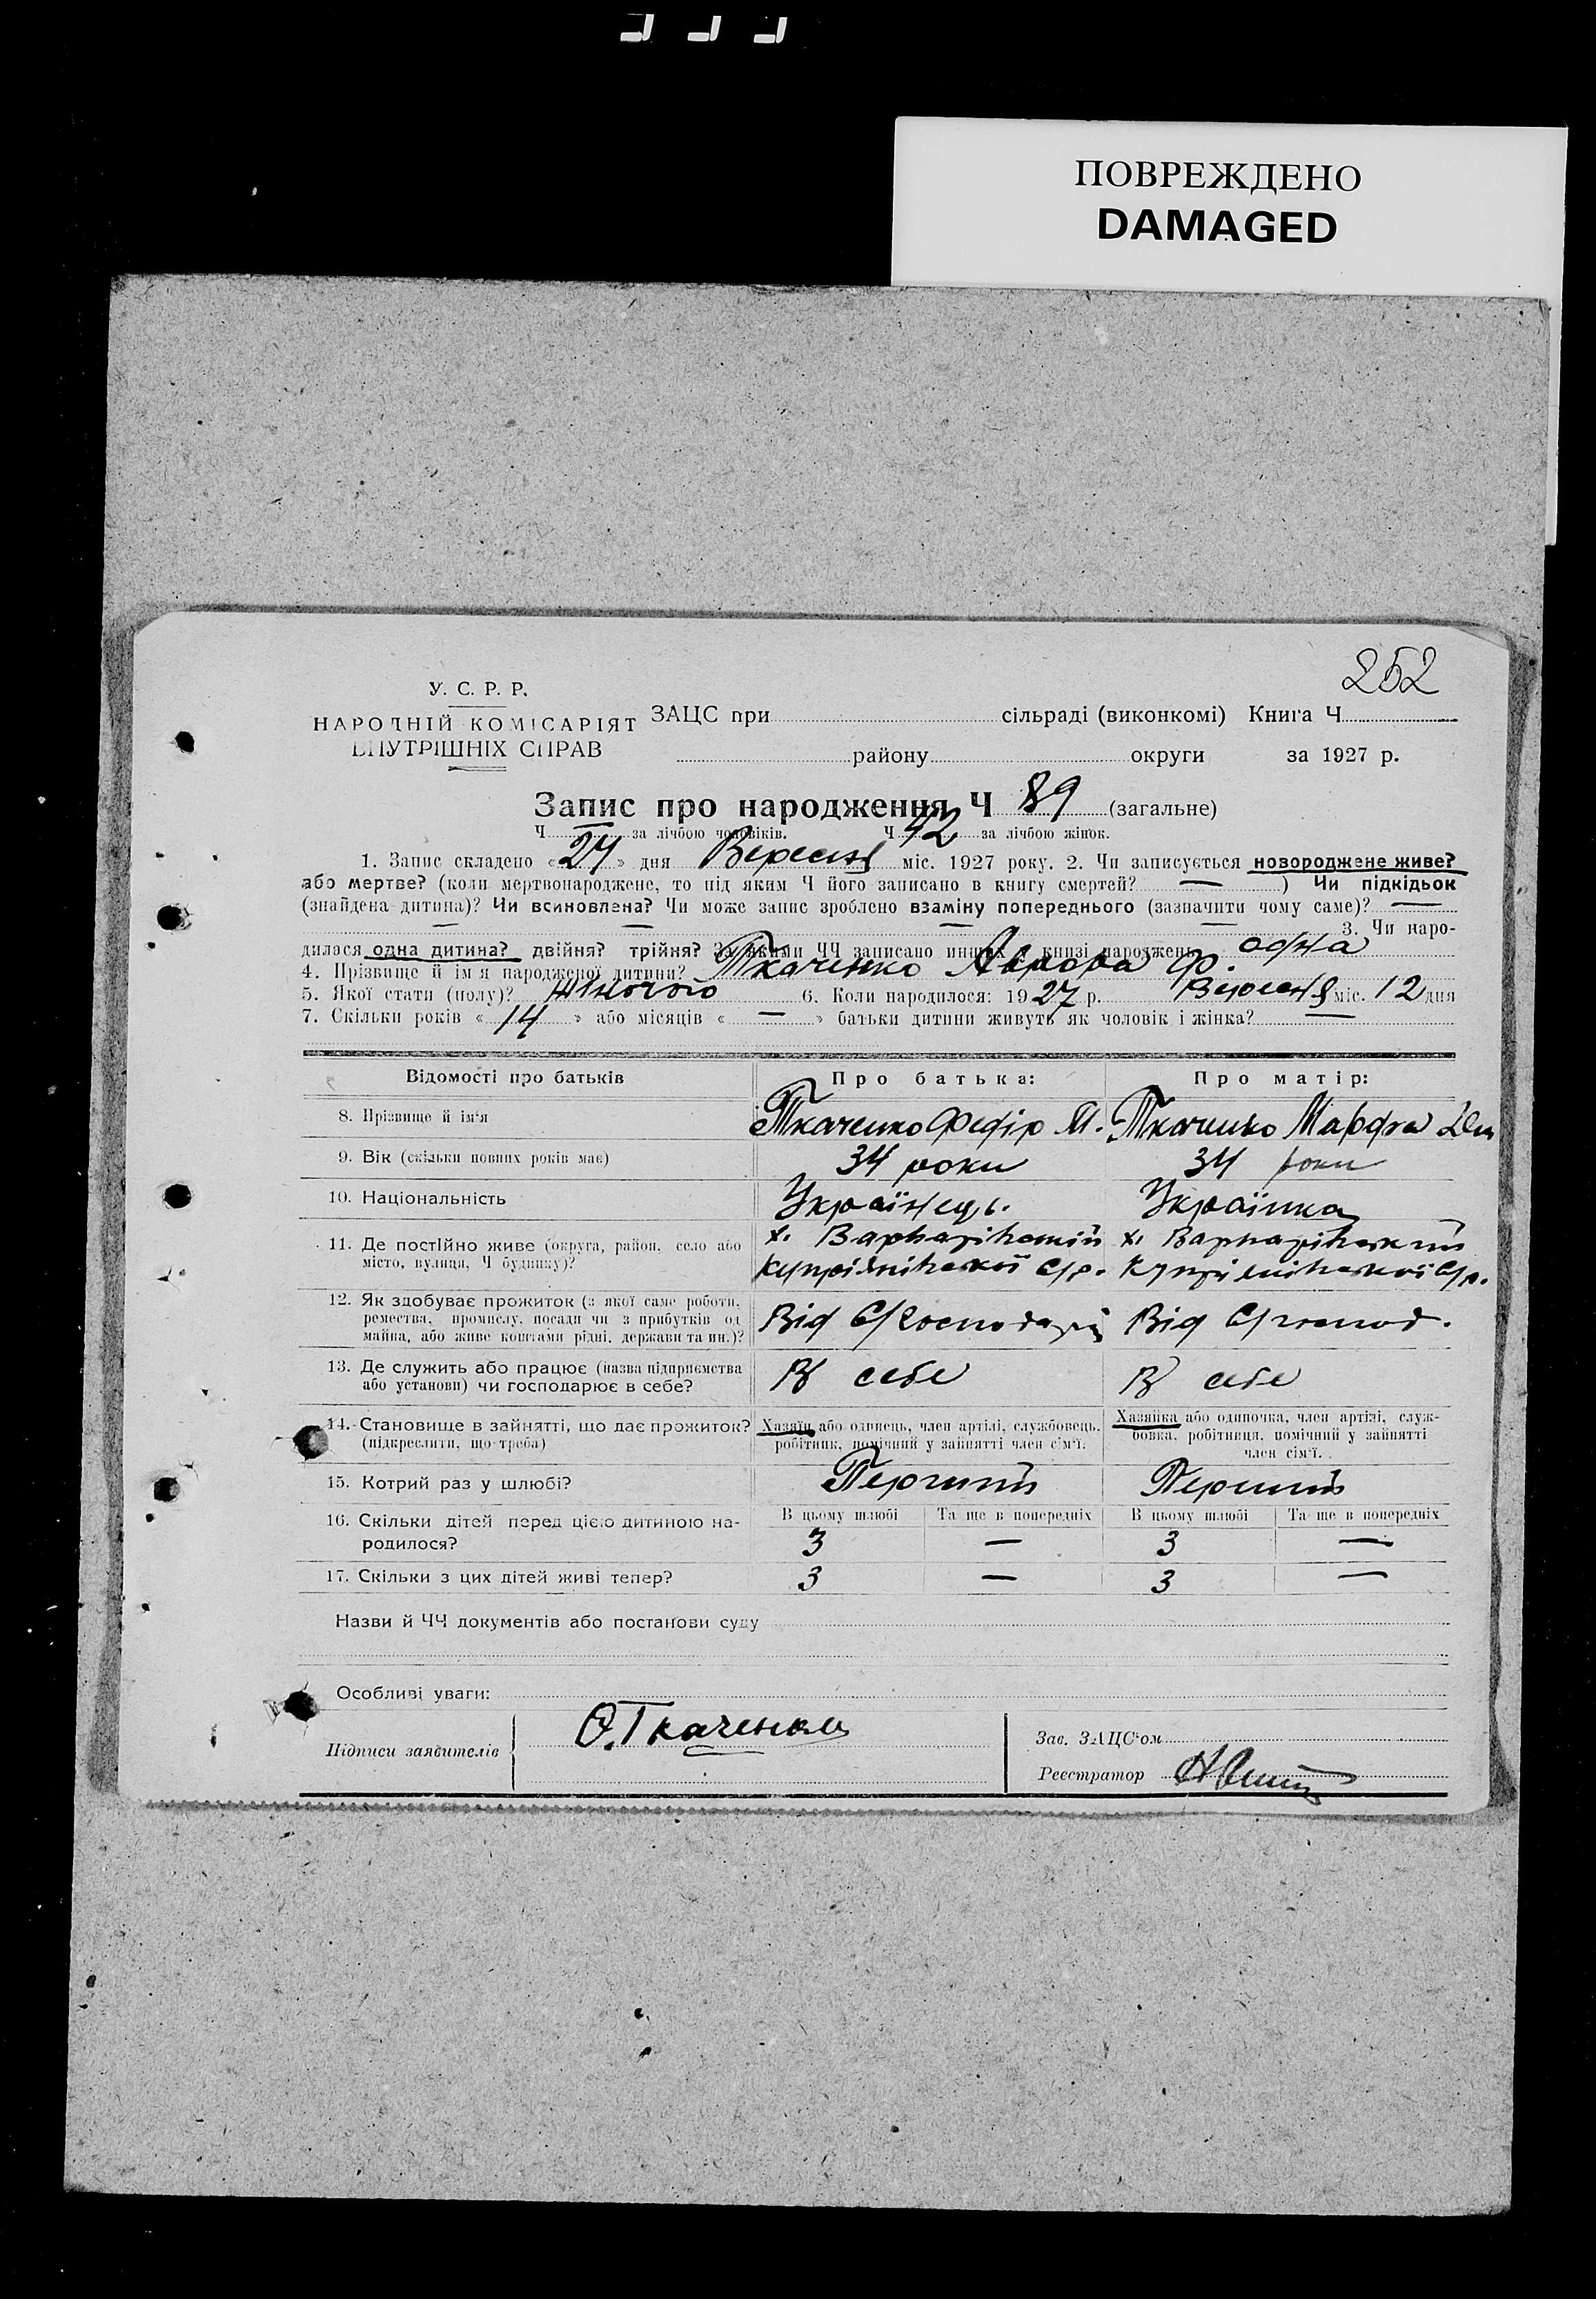 ПОВРЕЖДЕНО
DAMAGED
252
У. С. Р. Р.
НАРОДНІЙ КОМІСАРІЯТ
ВНУТРІШНІХ СПРАВ
ЗАЦС при сільраді (виконкомі) Книга Ч
району округи за 1927 р.
Запис про народження Ч 89 (загальне)
Ч — за лічбою чоловіків. Ч 42 за лічбою жінок.
1. Запис складено «24» дня Вересня міс. 1927 року. 2. Чи записується новороджене живе?
або мертве? (коли мертвонароджене, то під яким Ч його записано в книгу смертей? — ) Чи підкідьок
(знайдена дитина)? Чи всиновлена? Чи може запис зроблено взаміну попереднього (зазначити чому саме)? —
— — — — 3. Чи наро-
дилася одна дитина? двійня? трійня? За якими ЧЧ записано инших в книзі народжень одна
4. Прізвище й ім'я народженої дитини? Ткаченко Аврора Ф.
5. Якої стати (полу)? Жіночого 6. Коли народилося: 1927 р. Вересня міс. 12 дня
7. Скільки років «14» або місяців « — » батьки дитини живуть як чоловік і жінка? —
Відомості про батьків Про батька: Про матір:
8. Прізвище й ім'я Ткаченко Федір М. Ткаченко Марфа
9. Вік (скільки повних років має) 34 роки 34 роки
10. Національність Українець. Українка
11. Де постійно живе (округа, район, село або х. х.
місто, вулиця, Ч будинку)? С/р. С/р.
12. Як здобуває прожиток (з якої саме роботи,
ремества, промислу, посади чи з прибутків од Від С/господарія Від С/господ.
майна, або живе коштами рідні, держави та ин.)?
13. Де служить або працює (назва підприємства В себе В себе
або установи) чи господарює в себе?
14. Становище в зайнятті, що дає прожиток? Хазяїн або одинець, член артілі, службовець, Хазяйка або одиночка, член артілі, служ-
(підкреслити, що треба) робітник, помічний у зайнятті член сім'ї. бовка, робітниця, помічний у зайнятті
член сім'ї.
15. Котрий раз у шлюбі? Перший Перший
16. Скільки дітей перед цією дитиною на- В цьому шлюбі Та ще в попередніх В цьому шлюбі Та ще в попередніх
родилося? 3 — 3 —
17. Скільки з цих дітей живі тепер? 3 — 3 —
Назви й ЧЧ документів або постанови суду
Особливі уваги:
Підписи заявителів Ф. Ткаченко Зав. ЗАЦС'ом
Реєстратор